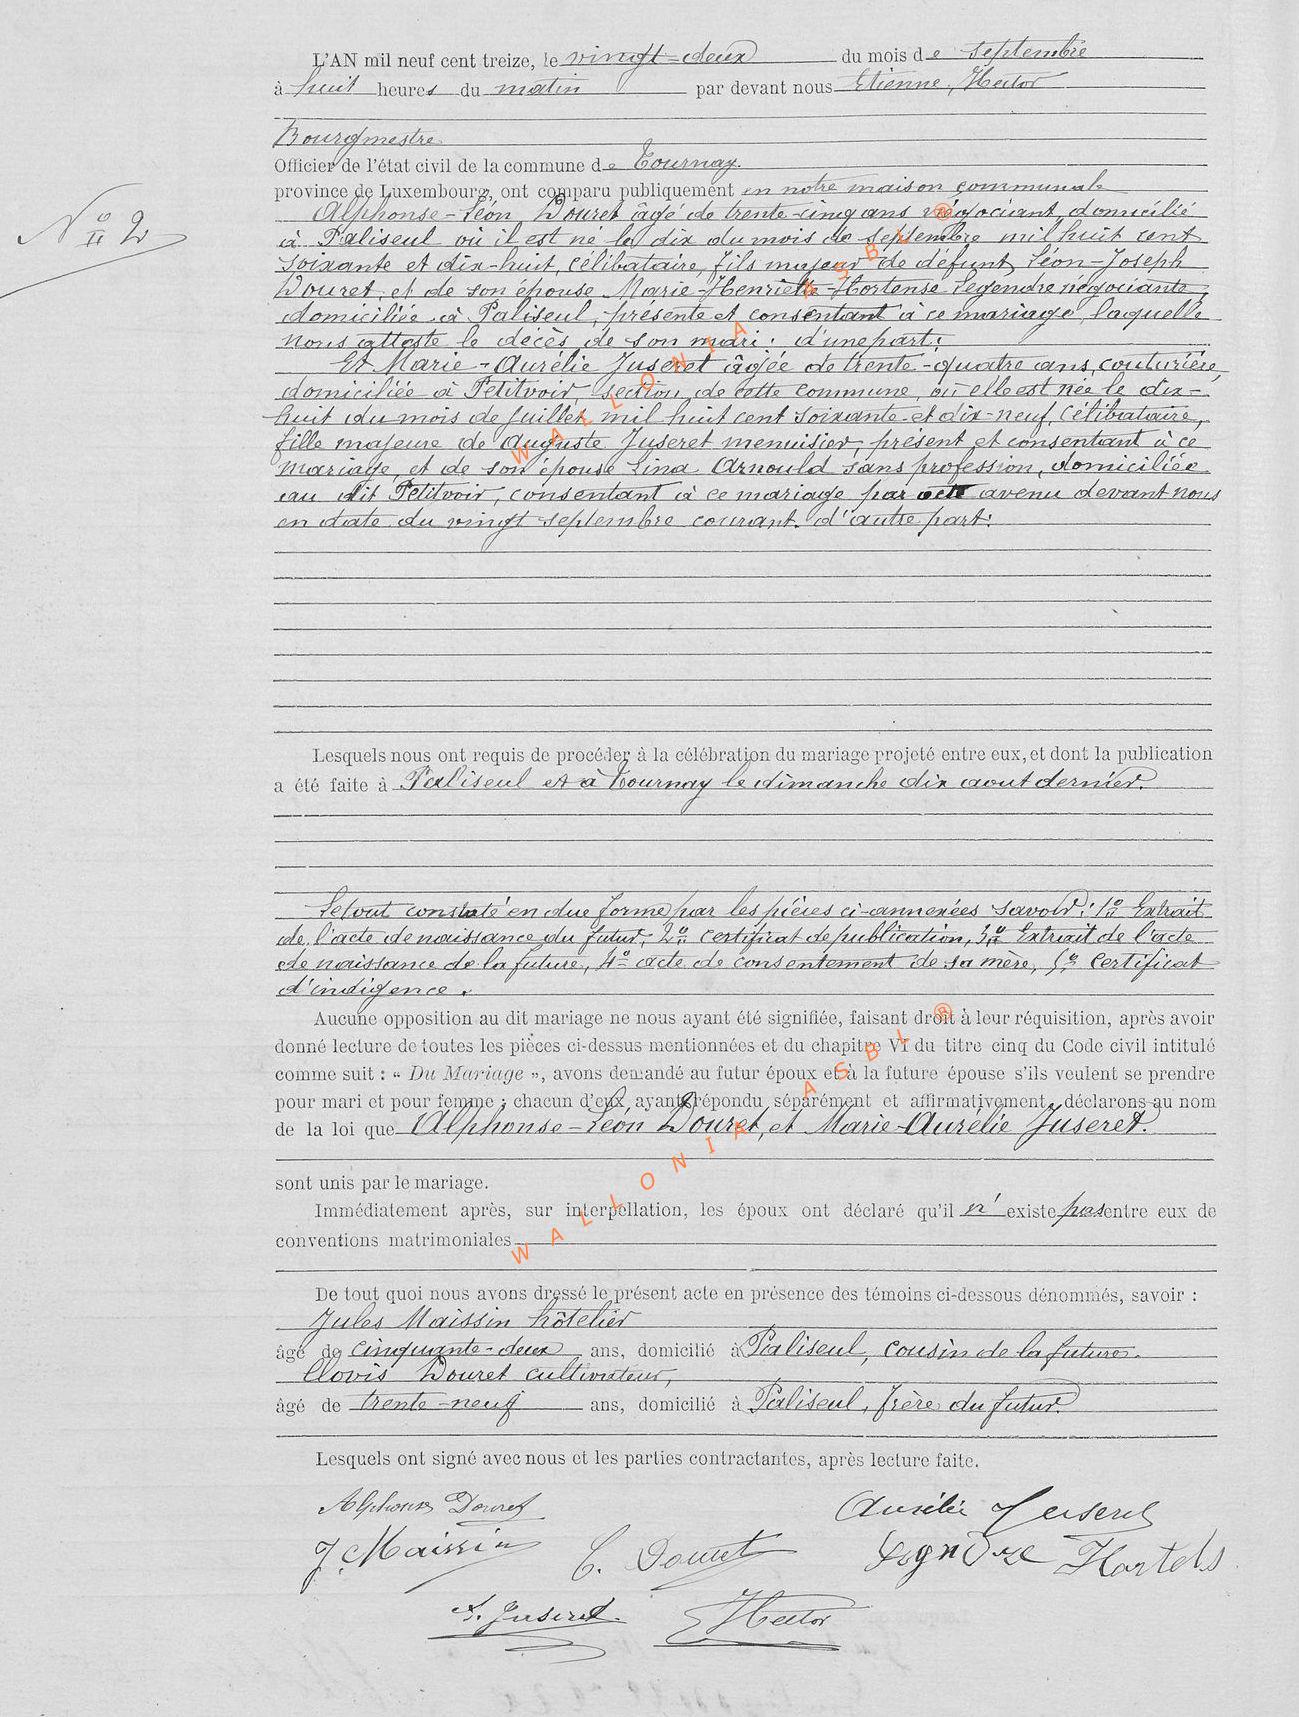 L'AN mil neuf cent treize, le vingt-deux du mois de septembre
à huit heures du matin par devant nous Etienne, Hector
Bourgmestre
Officier de l'état civil de la commune de Tournay.
province de Luxembourg, ont comparu publiquement en notre maison communale
N° 2
Alphonse-Léon Douret âgé de trente-cinq ans négociant domicilié
à Paliseul où il est né le dix du mois de septembre mil huit cent
soixante et dix-huit, célibataire, fils majeur de défunt Léon-Joseph
Douret, et de son épouse Marie-Henriette-Hortense Legendre négociante,
domiciliée à Paliseul, présente et consentant à ce mariage, laquelle
nous atteste le décès de son mari: d'une part:
Et Marie-Aurélie Juseret âgée de trente-quatre ans, couturière,
domiciliée à Petitvoir, section de cette commune, où elle est née le dix-
huit du mois de juillet mil huit cent soixante et dix-neuf, célibataire,
fille majeure de Auguste Juseret menuisier, présent et consentant à ce
mariage, et de son épouse Lina Arnould sans profession, domiciliée
au dit Petitvoir, consentant à ce mariage par acte avenu devant nous
en date du vingt septembre courant. d'autre part:
Lesquels nous ont requis de procéder à la célébration du mariage projeté entre eux, et dont la publication
a été faite à Paliseul et à Tournay le dimanche dix aout dernier.
Le tout constaté en due forme par les pièces ci-annexées savoir: 1° Extrait
de l'acte de naissance du futur, 2° certificat de publication, 3° Extrait de l'acte
de naissance de la future, 4° acte de consentement de sa mère, 5° certificat
d'indigence.
Aucune opposition au dit mariage ne nous ayant été signifiée, faisant droit à leur réquisition, après avoir
donné lecture de toutes les pièces ci-dessus mentionnées et du chapitre VI du titre cinq du Code civil intitulé
comme suit : « Du Mariage », avons demandé au futur époux et à la future épouse s'ils veulent se prendre
pour mari et pour femme ; chacun d'eux ayant répondu séparément et affirmativement, déclarons au nom
de la loi que Alphonse-Léon Douret, et Marie-Aurélie Juseret.
sont unis par le mariage.
Immédiatement après, sur interpellation, les époux ont déclaré qu'il n'existe pas entre eux de
conventions matrimoniales
De tout quoi nous avons dressé le présent acte en présence des témoins ci-dessous dénommés, savoir :
Jules Maissin hôtelier
âgé de cinquante-deux ans, domicilié à Paliseul, cousin de la future.
Clovis Douret cultivateur,
âgé de trente-neuf ans, domicilié à Paliseul, frère du futur.
Lesquels ont signé avec nous et les parties contractantes, après lecture faite.
Alphonse Douret Aurélie Juseret
J. Maissin C. Douret Legendre
A. Juseret. Hector
WALLONIA ASBL ®
WALLONIA ASBL ®